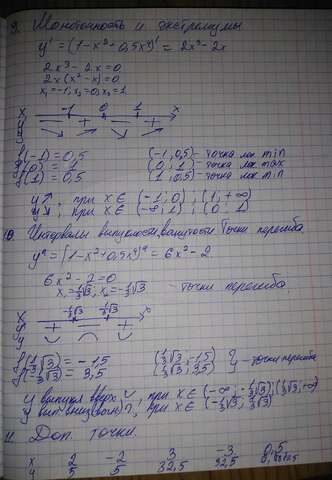 9. Монотонность и экстремумы.
y' = (1-x²+0,5x⁴)' = 2x³-2x
2x³-2x=0
2x(x²-x)=0
x₁=-1, x₂=0, x₃=1
-1 0 1 x
f(-1)=0,5 (-1; 0,5) - точка лок min
f(0)=1 (0; 1) - точка лок. max
f(1)=0,5 (1; 0,5) - точка лок. min
y↗, при x∈(-1; 0); (1; +∞)
y↘, при x∈(-∞; 1); (0; 1)
10. Интервалы выпуклости, вогнутости. Точки перегиба
y'' = (1-x²+0,5x⁴)'' = 6x²-2
6x²-2=0
x₁=⅓√3, x₂=-⅓√3 - точки перегиба
- точки перегиба
y выпукл вверх, при x∈(-∞; -⅓√3); (⅓√3; +∞)
y вып. вниз, при x∈(-⅓√3; ⅓√3)
11. Доп. точки.
x 2 -2 3 -3 0,5
y 5 5 32,5 32,5